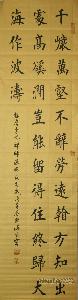 千巖萬壑不辭勞遠看方知出
處高溪澗豈能留得住終歸大
海作波濤